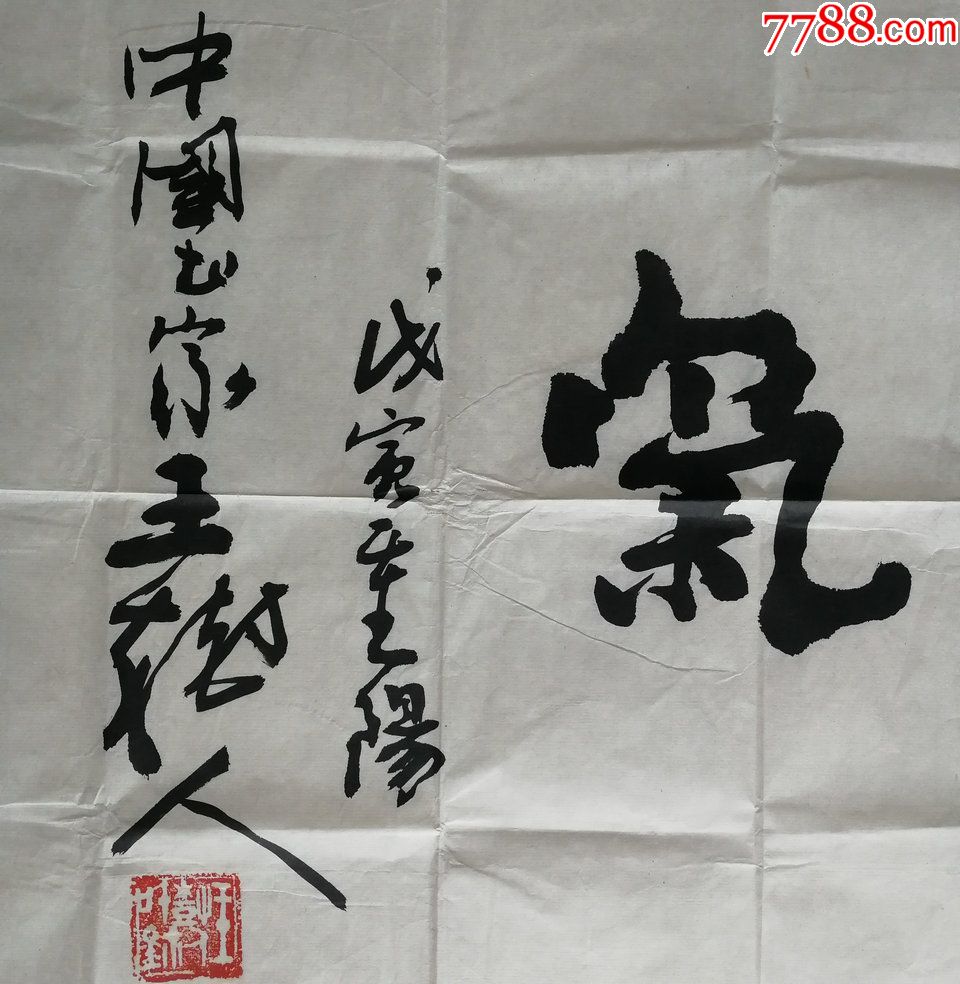 7788.com
氣
戊寅重陽
中國书家王樹人